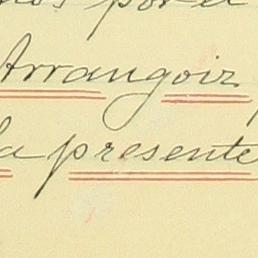 por
Arrangoiz
la presente